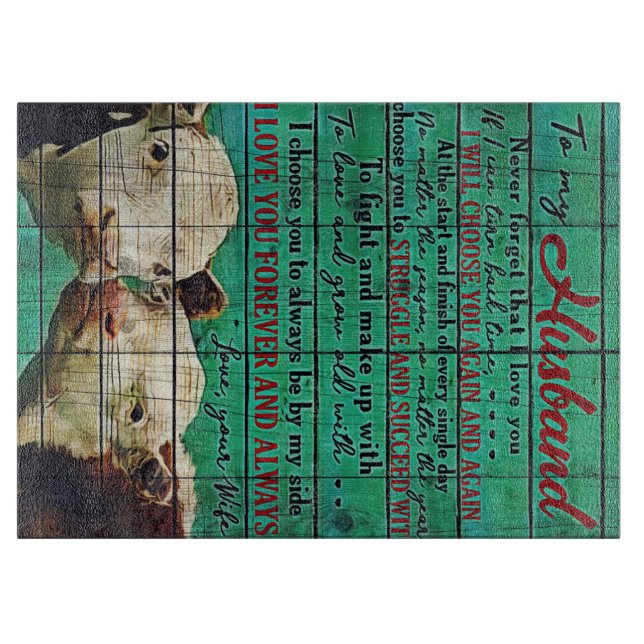 To my Husband
Never forget that I love you
If I can turn back time,
I WILL CHOOSE YOU AGAIN AND AGAIN
At the start and finish of every single day
No matter the season, no matter the year
choose you to STRUGGLE AND SUCCEED WIT
To fight and make up with
To love and grow old with
I choose you to always be by my side
I LOVE YOU FOREVER AND ALWAYS
Love, your Wife